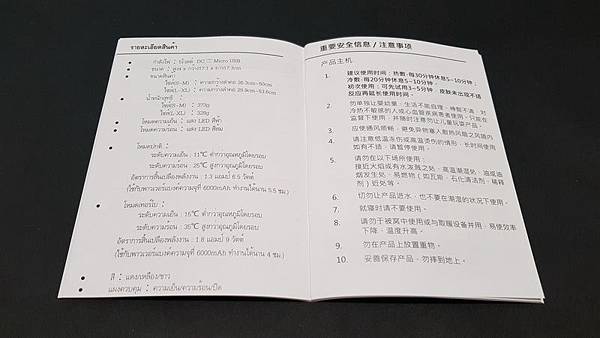 รายละเอียดสินค้า
กำลังไฟ : 5โวลต์ DC Micro USB
ขนาดสินค้า
ไซส์(S-M) : ความกว้างลำคอ 26.3cm~50cm
ไซส์(L-XL) : ความกว้างลำคอ 29.9cm~51.6cm
น้ำหนักสุทธิ :
ไซส์(S-M) : 377g
ไซส์(L-XL) : 329g
โหมดความเย็น : แสง LED สีฟ้า
โหมดความร้อน : แสง LED สีส้ม
โหมดปกติ :
ระดับความเย็น : 11℃ ต่ำกว่าอุณหภูมิโดยรอบ
ระดับความร้อน : 25℃ สูงกว่าอุณหภูมิโดยรอบ
อัตราการสิ้นเปลืองพลังงาน : 1.3 แอมป์ 6.5 วัตต์
(ใช้กับพาวเวอร์แบงค์ความจุที่ 6000mAh ทำงานได้นาน 5.5 ชม.)
ระดับความเย็น : 16℃ ต่ำกว่าอุณหภูมิโดยรอบ
ระดับความร้อน : 35℃ สูงกว่าอุณหภูมิโดยรอบ
อัตราการสิ้นเปลืองพลังงาน : 1.8 แอมป์ 9 วัตต์
(ใช้กับพาวเวอร์แบงค์ความจุที่ 6000mAh ทำงานได้นาน 4 ชม.)
สี : แดง/เหลือง/ขาว
แผงควบคุม : ความเย็น/ความร้อน/ปิด
重要安全信息 / 注意事项
产品主机
1. 建议使用时间：热敷-每30分钟休息5~10分钟，
冷敷-每20分钟休息5~10分钟。
初次使用：可先试用3~5分钟，皮肤未出现不适
反应再延长使用时间。
2. 勿单独让婴幼童、生活不能自理、睡智不清、对
冷热不敏感的人或心血管疾病患者使用，只能在
监督下使用，并随时注意勿让儿童玩耍产品。
3. 应使通风顺畅，避免异物塞入散热风扇之风道内
4. 请注意低温冻伤或高温烫伤的情形，长时间使用
如有不适，请暂停使用。
5. 请勿在以下场所使用：
接近火焰或有水滚溅之处、高温潮湿处、油或油
烟发生处、易燃物（如瓦斯、石化清洁剂、稀释
剂）近处等。
6. 切勿让产品进水，也不要在潮湿的状况下使用。
7. 就寝时请不要使用。
8. 请勿于被窝中使用或与取暖设备并用，易使效率
下降，温度升高。
9. 勿在产品上放置重物。
10. 妥善保存产品，勿摔到地上。